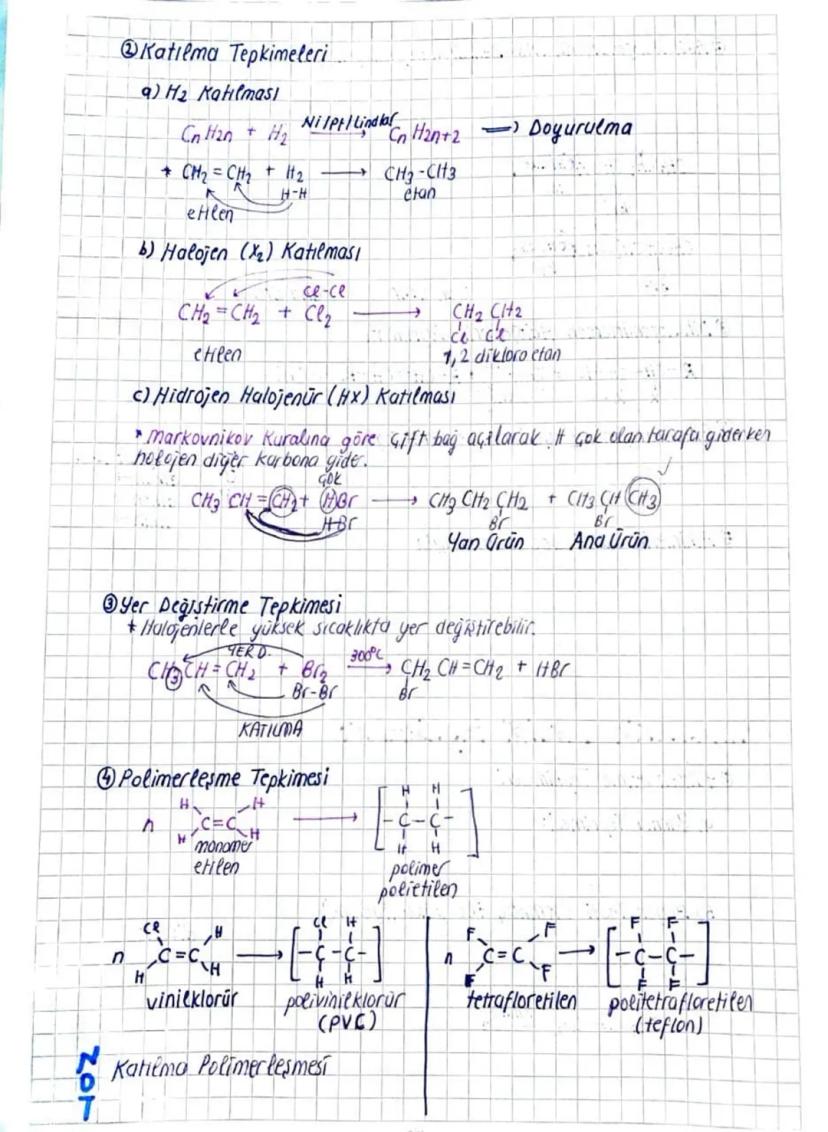 ② Katılma Tepkimeleri
a) H2 Katılması
CnH2n + H2 Ni/Pt/Lindlar CnH2n+2 => Doyurulma
* CH2 = CH2 + H2 → CH3-CH3
H-H
etilen etan
b) Halojen (X2) Katılması
Cl-Cl
CH2 = CH2 + Cl2 → CH2 CH2
Cl Cl
etilen 1,2 dikloro etan
c) Hidrojen Halojenür (HX) Katılması
* Markovnikov Kuralına göre çift bağ açılarak H çok olan tarafa giderken
halojen diğer karbona gider.
çok
CH3 CH = CH2 + HBr → CH3 CH2 CH2 + CH3 CH CH3
H-Br Br Br
Yan Ürün Ana Ürün
③ Yer Değiştirme Tepkimesi
* Halojenlerle yüksek sıcaklıkta yer değiştirebilir.
YER D.
CH3 CH = CH2 + Br2 300°C → CH2 CH = CH2 + HBr
Br-Br Br
KATILMA
④ Polimerleşme Tepkimesi
H H H H
n C=C → [-C-C-]
H H H H
monomer
etilen
polimer
polietilen
Cl H Cl H
n C=C → [-C-C-]
H H H H
vinilklorür polivinilklorür
(PVC)
F F F F
n C=C → [-C-C-]
F F F F
tetrafloretilen politetrafloretilen
(teflon)
NOT
Katılma Polimerleşmesi